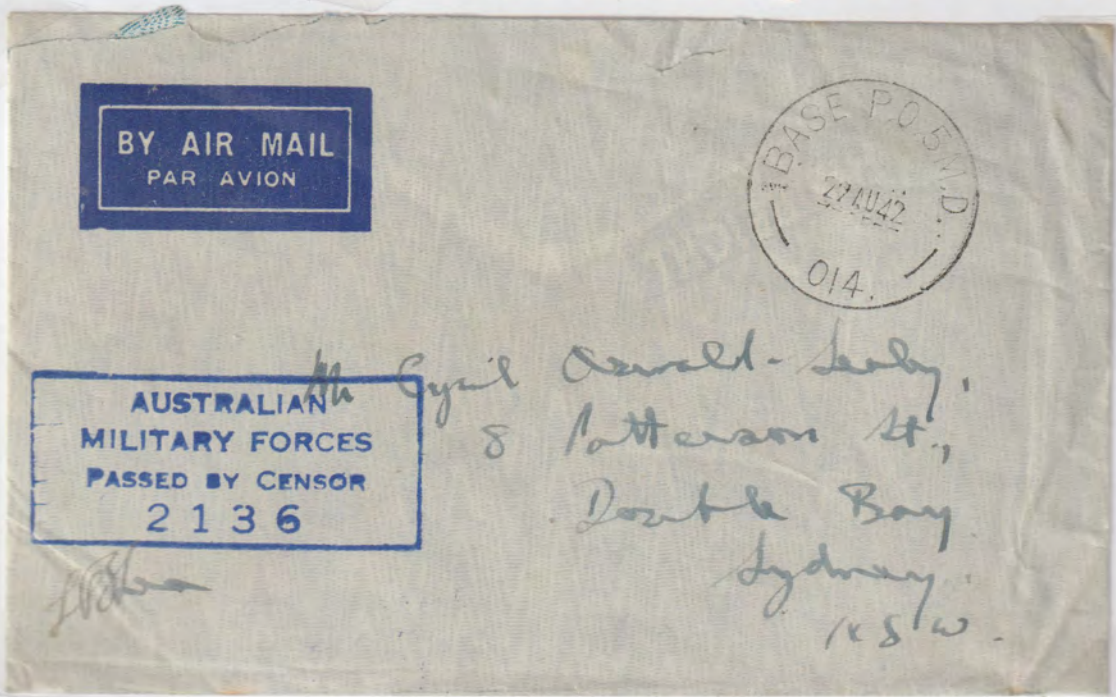 BY AIR MAIL
PAR AVION
1 BASE P.O. 5 M.D.
27 AU 42
014.
AUSTRALIAN
MILITARY FORCES
PASSED BY CENSOR
2136
Mr Cyril Oswald-Sealy,
8 Patterson St.,
Double Bay
Sydney.
N S W.